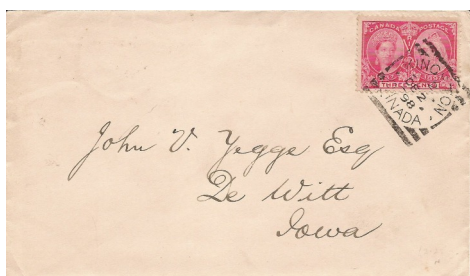 CANADA POSTAGE
THREE CENTS
CANADA
98
John V. Yegge Esq
De Witt
Iowa